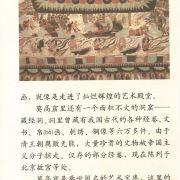 画，就像是走进了灿烂辉煌的艺术殿堂。
莫高窟里还有一个面积不大的洞窟——
藏经洞。洞里曾藏有我国古代的各种经卷、文
书、帛(bó)画、刺绣、铜像等六万多件。由于
清王朝腐败无能，大量珍贵的文物被帝国主
义分子掠夺。仅存的部分经卷，现在陈列于
北京故宫等处。
莫高窟是举世闻名的艺术宝库。这里的